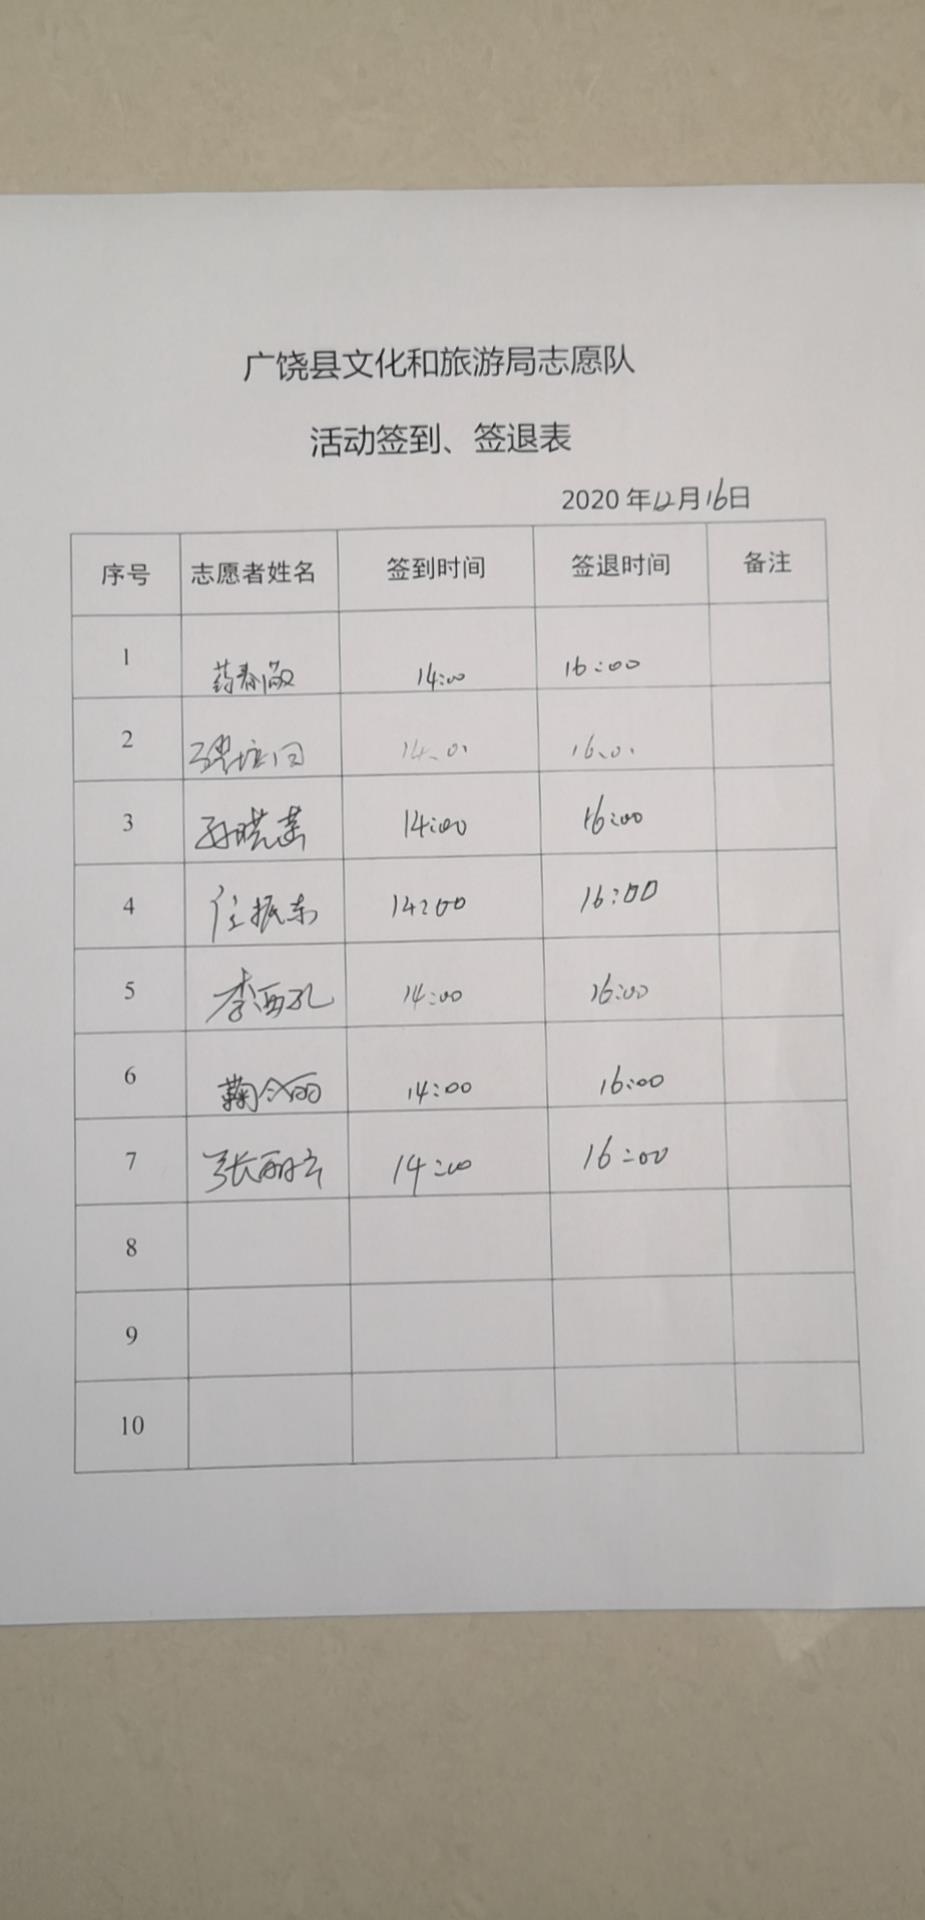 广饶县文化和旅游局志愿队
活动签到、签退表
2020年12月16日
序号 志愿者姓名 签到时间 签退时间 备注
1 14:00 16:00
2
3 孙晓燕 14:00 16:00
4 任振东 14:00 16:00
5 14:00 16:00
6 14:00 16:00
7 14:00 16:00
8
9
10